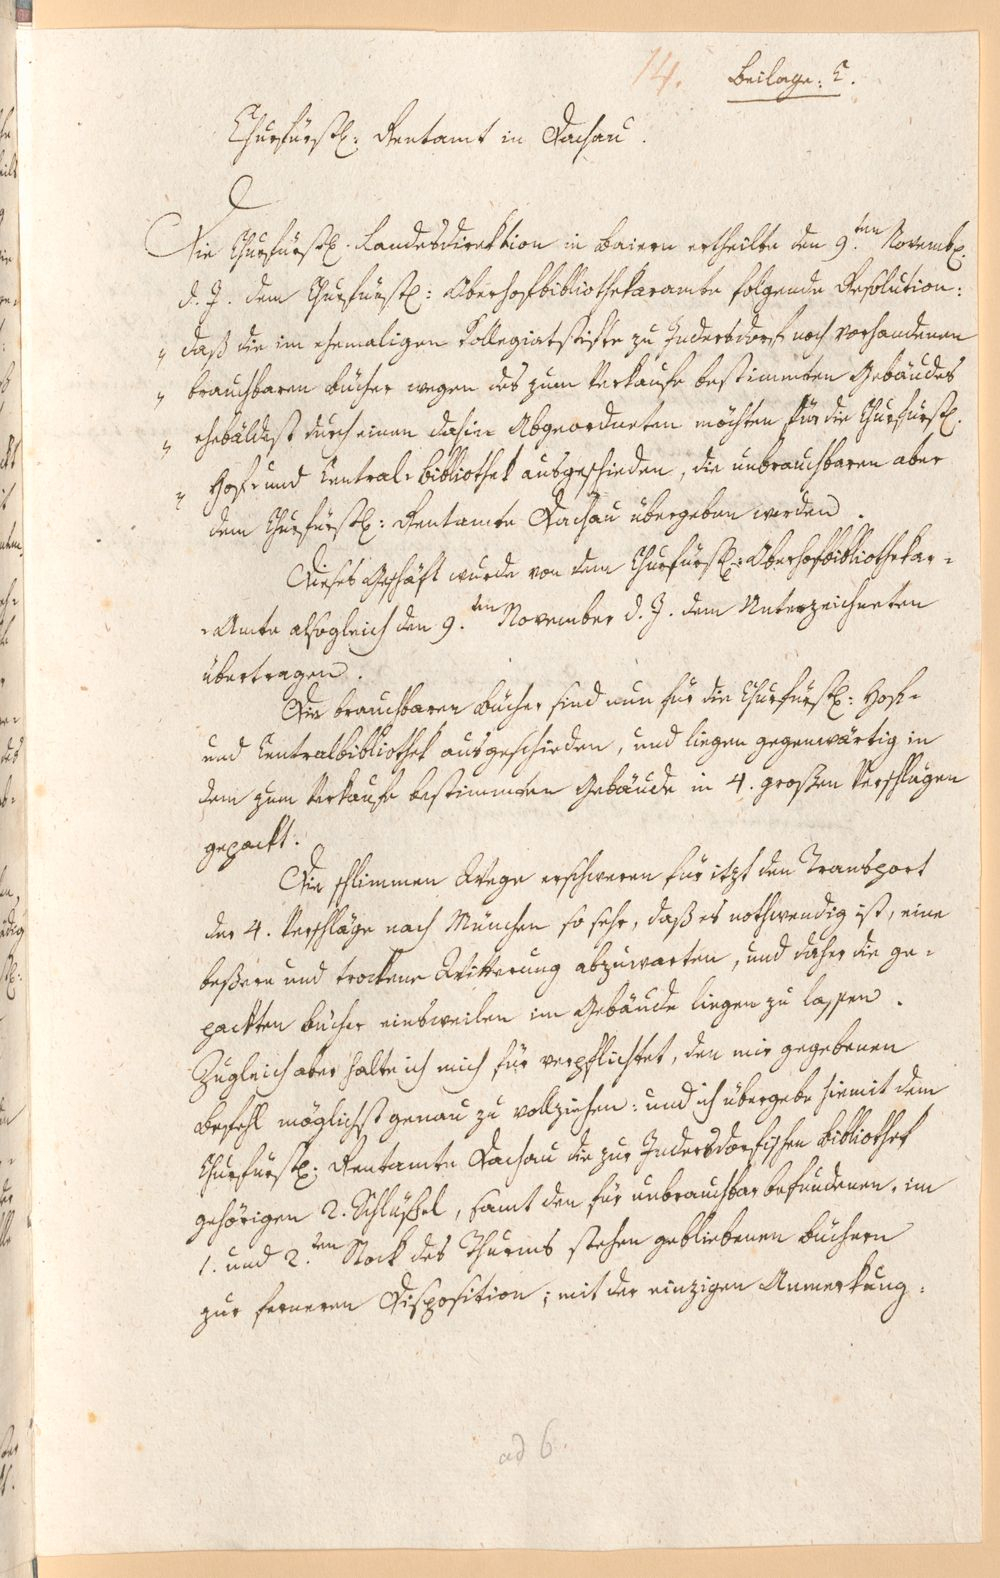 14.
Beilage: C.
Churfürstl: Rentamt in Dachau.
Die Churfürstl. Landesdirektion in Baiern ertheilte den 9.ten Novembr.
d. J. dem Churfürstl: Oberhofbibliothekaramte folgende Resolution:
„ daß die im ehemaligen Kollegiatstifte zu Indersdorf noch vorhandenen
„ brauchbaren Bücher wegen des zum Verkaufe bestimmten Gebäudes
„ ehebäldest durch einen dahin Abgeordneten möchten für die Churfürstl.
„ Hof- und Central-bibliothek ausgeschieden, die unbrauchbaren aber
dem Churfürstl: Rentamte Dachau übergeben werden.
Dieses Geschäft wurde von dem Churfürstl: Oberhofbibliothekar-
-Amte alsogleich den 9.ten November d. J. dem Unterzeichneten
übertragen.
Die brauchbaren Bücher sind nun für die Churfürstl: Hof-
und Centralbibliothek ausgeschieden, und liegen gegenwärtig in
dem zum Verkaufe bestimmten Gebäude in 4. großen Verschlägen
gepackt.
Die schlimmen Wege erschweren für itzt den Transport
der 4. Verschläge nach München so sehr, daß es nothwendig ist, eine
beßere und trockene Witterung abzuwarten, und daher die ge-
packten Bücher einsweilen im Gebäude liegen zu lassen.
Zugleich aber halte ich mich für verpflichtet, den mir gegebenen
Befehl möglichst genau zu vollziehen: und ich übergebe hiemit dem
Churfürstl: Rentamte Dachau die zur Indersdorfischen Bibliothek
gehörigen 2. Schlüßel, samt den für unbrauchbar befundenen, im
1. und 2.ten Stock des Thurms stehen gebliebenen Büchern
zur ferneren Disposition; mit der einzigen Anmerkung:
ad 6.